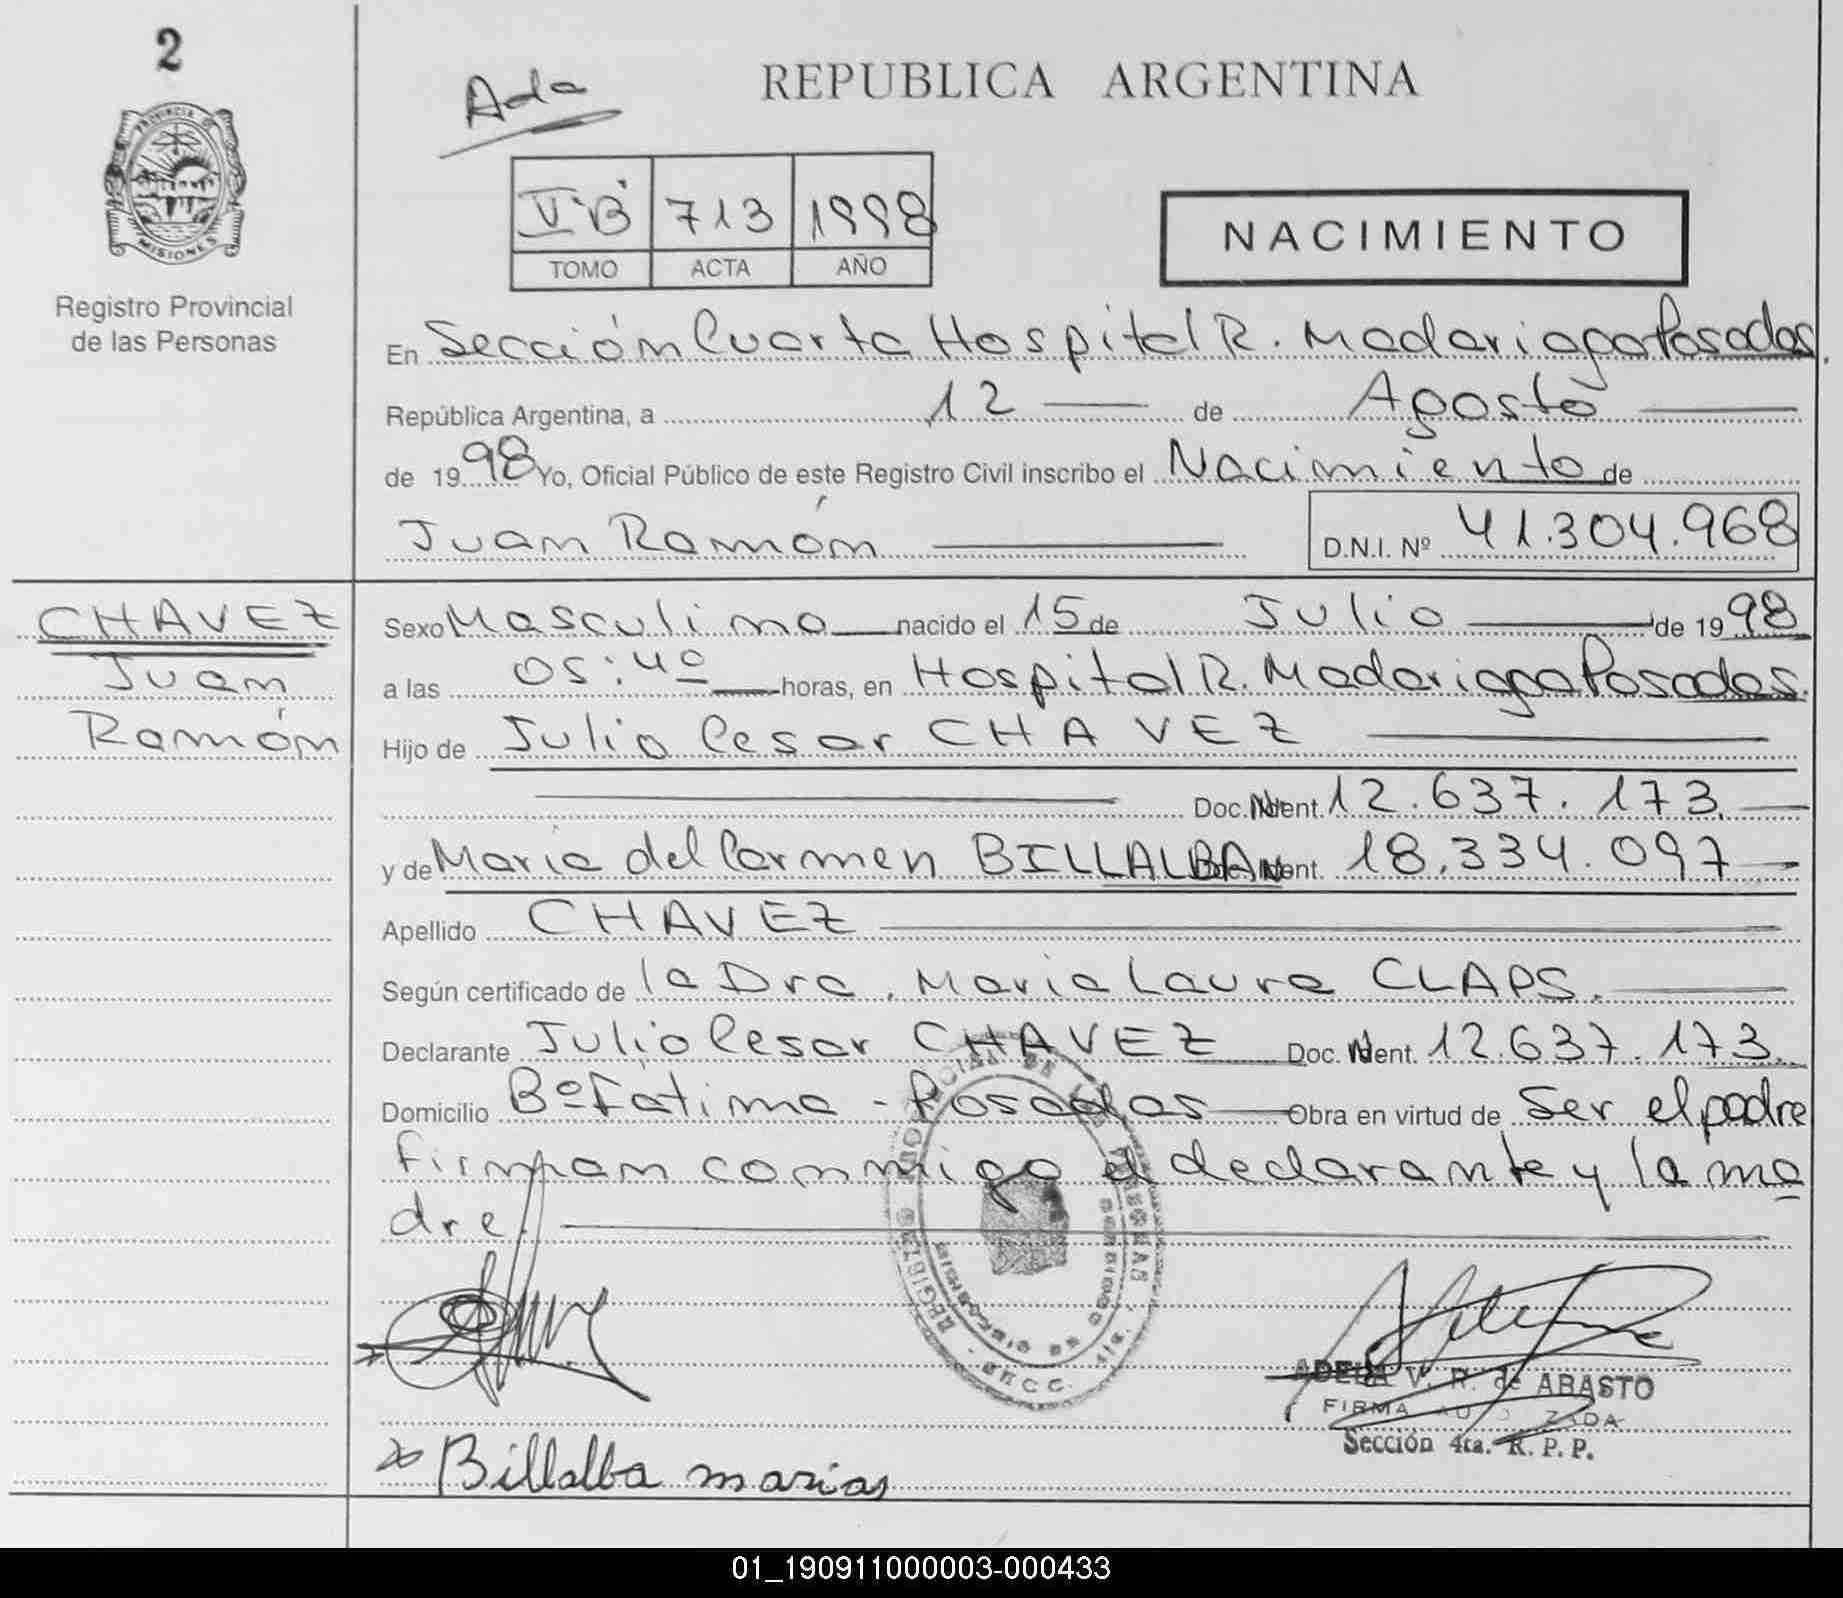 2
PROVINCIA DE
MISIONES
Registro Provincial
de las Personas
Ada
REPUBLICA ARGENTINA
V·B 713 1998
TOMO ACTA AÑO
NACIMIENTO
En Sección Cuarta Hospital R. Madariaga Posadas,
República Argentina, a 12 de Agosto
de 1998 Yo, Oficial Público de este Registro Civil inscribo el Nacimiento de
Juan Ramón D.N.I. Nº 41.304.968
CHAVEZ
Juan
Ramón
Sexo Masculino nacido el 15 de Julio de 1998
a las 05:40 horas, en Hospital R. Madariaga Posadas.
Hijo de Julio Cesar CHAVEZ
Doc. Ident. 12.637.173.
y de Maria del Carmen BILLALBA Doc. Ident. 18.334.097
Apellido CHAVEZ
Según certificado de la Dra. Maria Laura CLAPS.
Declarante Julio Cesar CHAVEZ Doc. Ident. 12.637.173.
Domicilio Bº Fatima - Posadas Obra en virtud de Ser el padre
firman conmigo el declarante y la ma
dre.
ADELA V. R. de ABASTO
FIRMA AUTORIZADA
Sección 4ta. R. P. P.
Billalba marias
01_190911000003-000433